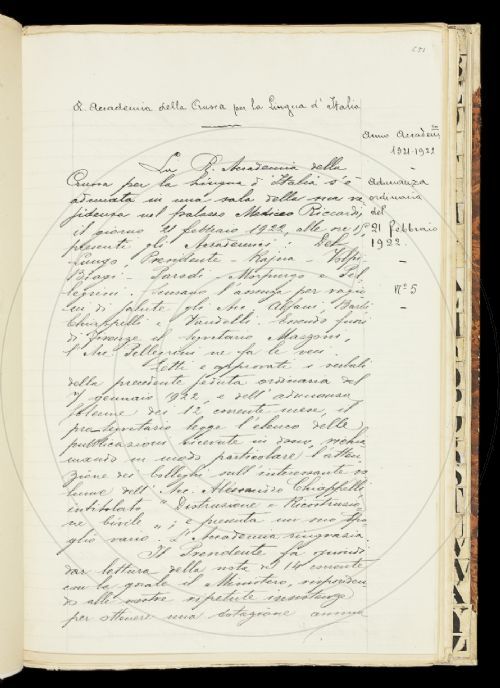 R. Accademia della Crusca per la Lingua d'Italia
Anno Accadem
1921-1922
La R. Accademia della
Crusca per la Lingua d'Italia s'è
adunata in una sala della sua re
sidenza nel palazzo Mediceo Riccardi,
il giorno 21 febbraio 1922, alle ore 15
presenti gli Accademici: Del
Lungo, Presidente - Rajna - Volpi
Biagi - Parodi - Morpurgo e Pel
legrini. Scusano l'assenza per ragio
ni di salute gli Acc. Alfani, Barbi
Chiappelli e Vandelli. Essendo fuori
di Firenze il Segretario Mazzoni,
l'Acc. Pellegrini ne fa le veci.
Adunanza
ordinaria
del
21 febbraio
1922.
N° 5
Letti e approvati i verbali
della precedente seduta ordinaria del
gennaio 1922, e dell'adunanza
solenne dei 12 corrente mese, il
pro-segretario legge l'elenco delle
pubblicazioni ricevute in dono, richia
mando in modo particolare l'atten
zione dei colleghi sull'interessante vo
lume dell'Acc. Alessandro Chiappelli
intitolato "Distruzione e Ricostruzio
ne civile"; e presenta un suo spo
glio vario. L'Accademia ringrazia.
Il Presidente fa quindi
dar lettura della nota del 14 corrente
con la quale il Ministero, risponden
do alle nostre ripetute insistenze
per ottenere una dotazione annua